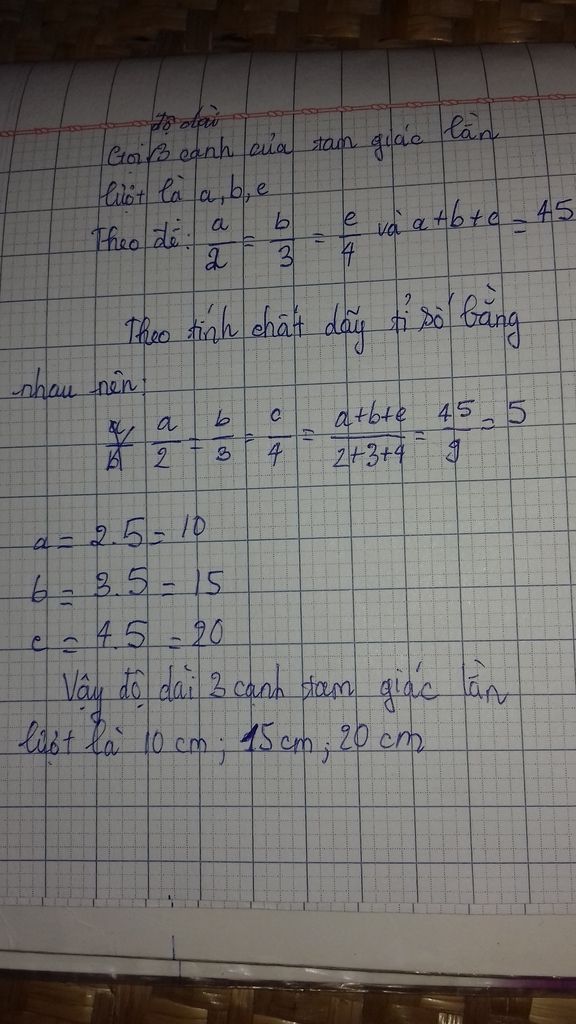 độ dài
Gọi 3 cạnh của tam giác lần
lượt là a, b, c
Theo đề: a/2 = b/3 = c/4 và a+b+c = 45
Theo tính chất dãy tỉ số bằng
nhau nên:
a/2 = b/3 = c/4 = a+b+c/2+3+4 = 45/9 = 5
a = 2.5 = 10
b = 3.5 = 15
c = 4.5 = 20
Vậy độ dài 3 cạnh tam giác lần
lượt là 10 cm; 15 cm; 20 cm